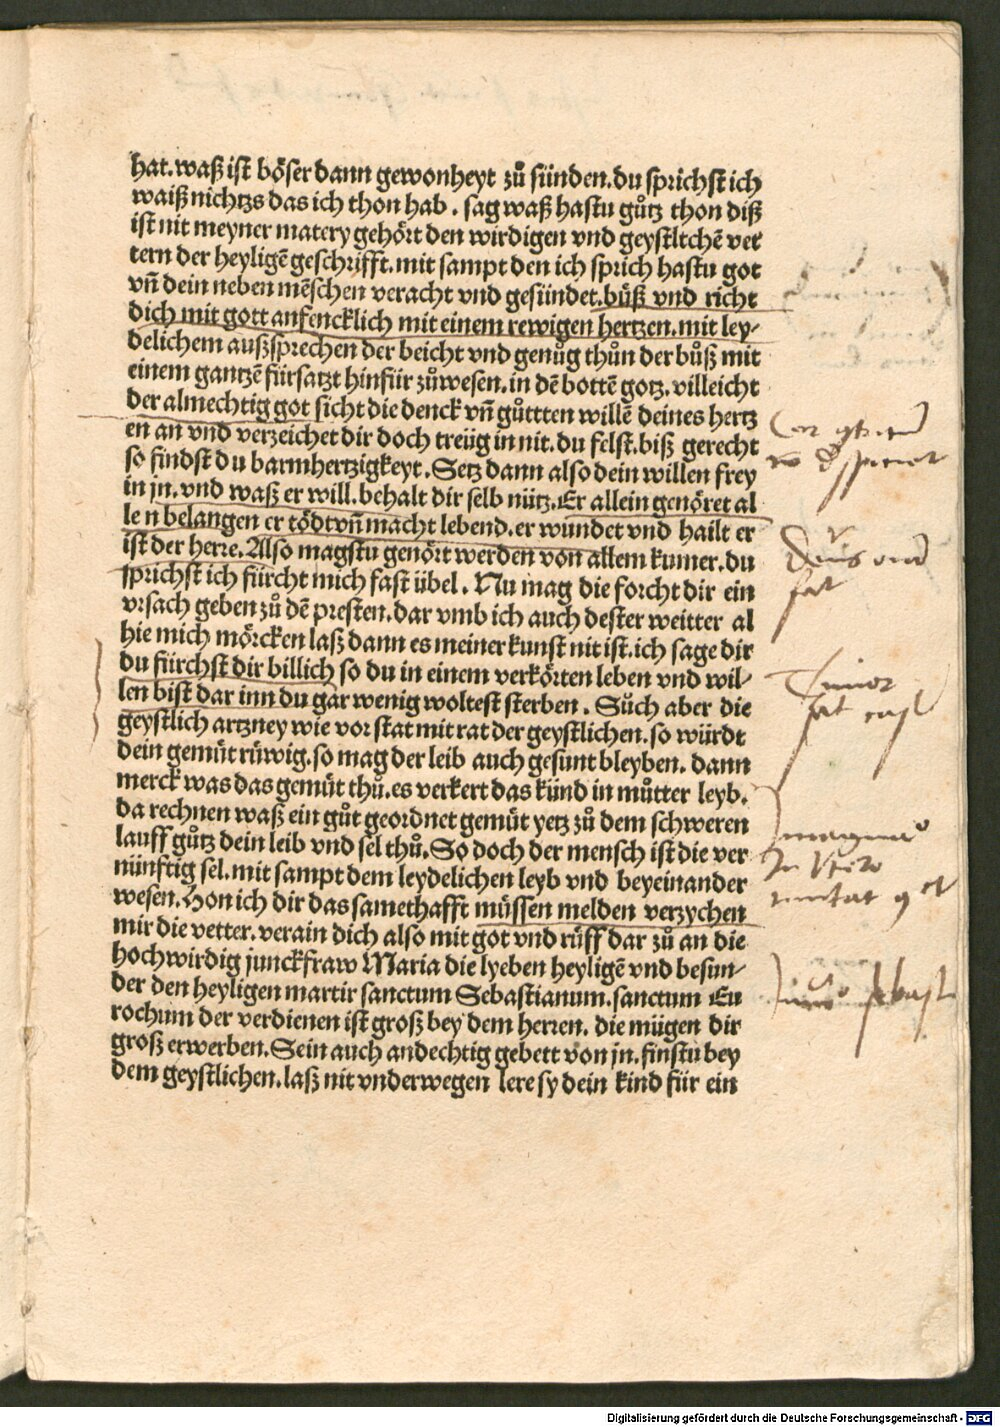 hat. waß ist böser dann gewonheyt zů sünden. du sprichst ich
waiß nichtzs das ich thon hab. sag waß hastu gůtz thon diß
ist nit meyner matery gehört den wirdigen vnd geystltchē vet
tern der heyligē geschrifft. mit sampt den ich sprich hastu got
vn̄ dein neben mēschen veracht vnd gesündet. büß vnd richt
dich mit gott anfencklich mit einem rewigen hertzen. mit ley-
delichem außsprechen der beicht vnd genůg thůn der bůß mit
einem gantzē fürsatzt hinfür zůwesen. in dē bottē gotz. villeicht
der almechtig got sicht die denck vn̄ gůttten willē deines hertz
en an vnd verzeichet dir doch treüg in nit. du felst. biß gerecht
so findst du barmhertzigkeyt. Setz dann also dein willen frey
in jn. vnd waß er will. behalt dir selb nütz. Er allein genöret al
le n belangen er tödt vn̄ macht lebend. er wundet vnd hailt er
ist der herre. Also magstu genört werden von allem kumer. du
sprichst ich fürcht mich fast übel. Nu mag die forcht dir ein
vrsach geben zů dē presten. dar vmb ich auch dester weitter al
hie mich mörcken laß dann es meiner kunst nit ist. ich sage dir
du fürchst dir billich so du in einem verkörten leben vnd wil-
len bist dar inn du gar wenig woltest sterben. Sůch aber die
geystlich artzney wie vor stat mit rat der geystlichen. so würdt
dein gemüt rüwig. so mag der leib auch gesunt bleyben. dann
merck was das gemüt thů. es verkert das künd in můtter leyb.
da rechnen waß ein gůt geordnet gemüt yetz zů dem schweren
lauff gůtz dein leib vnd sel thů. So doch der mensch ist die ver
nünftig sel. mit sampt dem leydelichen leyb vnd beyeinander
wesen. Hon ich dir das samethafft müssen melden verzychen
mir die vetter. verain dich also mit got vnd rüff dar zů an die
hochwirdig junckfraw Maria die lyeben heyligē vnd besun-
der den heyligen martir sanctum Sebastianum. sanctum Eu
rochum der verdienen ist groß bey dem herren. die mügen dir
groß erwerben. Sein auch andechtig gebett von jn. finstu bey
dem geystlichen. laß nit vnderwegen lere sy dein kind für ein
Timor
Digitalisierung gefördert durch die Deutsche Forschungsgemeinschaft - DFG